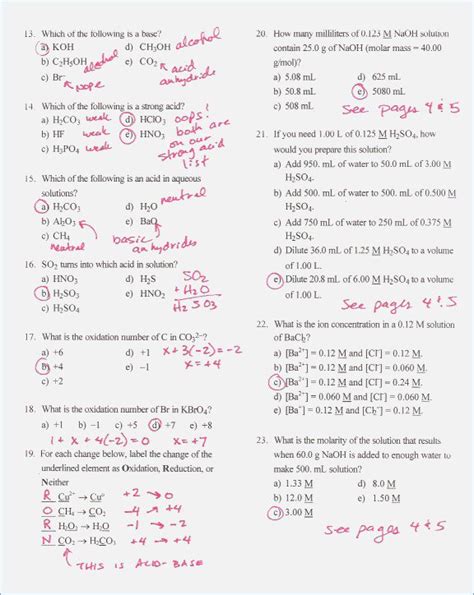 13. Which of the following is a base?
a) KOH d) CH₃OH alcohol
b) C₂H₅OH alcohol e) CO₂ acid
c) Br⁻ nope anhydride
14. Which of the following is a strong acid?
a) H₂CO₃ weak d) HClO₃ oops!
b) HF weak e) HNO₃ both are
c) H₃PO₄ weak on our
strong acid
list
15. Which of the following is an acid in aqueous
solutions?
a) H₂CO₃ d) H₂O neutral
b) Al₂O₃ e) BaO
c) CH₄ basic
neutral anhydrides
16. SO₂ turns into which acid in solution?
a) HNO₃ d) H₂S SO₂
b) H₂SO₃ e) HNO₂ + H₂O
c) H₂SO₄ H₂SO3
17. What is the oxidation number of C in CO₃²⁻?
a) +6 d) +1 x + 3(-2) = -2
b) +4 e) –1 x = +4
c) +2
18. What is the oxidation number of Br in KBrO₄?
a) +1 b) –1 c) +5 d) +7 e) –7
1 + x + 4(-2) = 0 x = +7
19. For each change below, label the change of the
underlined element as Oxidation, Reduction, or
Neither
R Cu²⁺ → Cu⁰ +2 → 0
O CH₄ → CO₂ -4 → +4
R H₂O₂ → H₂O -1 → -2
N CO₂ → H₂CO₃ +4 → +4
THIS IS ACID-BASE
20. How many milliliters of 0.123 M NaOH solution
contain 25.0 g of NaOH (molar mass = 40.00
g/mol)?
a) 5.08 mL d) 625 mL
b) 50.8 mL e) 5080 mL
c) 508 mL see pages 4 & 5
21. If you need 1.00 L of 0.125 M H₂SO₄, how
would you prepare this solution?
a) Add 950. mL of water to 50.0 mL of 3.00 M
H₂SO₄.
b) Add 500. mL of water to 500. mL of 0.500 M
H₂SO₄.
c) Add 750 mL of water to 250 mL of 0.375 M
H₂SO₄.
d) Dilute 36.0 mL of 1.25 M H₂SO₄ to a volume
of 1.00 L.
e) Dilute 20.8 mL of 6.00 M H₂SO₄ to a volume
of 1.00 L.
see pages 4 & 5
22. What is the ion concentration in a 0.12 M solution
of BaCl₂?
a) [Ba²⁺] = 0.12 M and [Cl⁻] = 0.12 M.
b) [Ba²⁺] = 0.12 M and [Cl⁻] = 0.06 M.
c) [Ba²⁺] = 0.12 M and [Cl⁻] = 0.24 M.
d) [Ba²⁺] = 0.06 M and [Cl⁻] = 0.12 M.
e) [Ba⁺] = 0.12 M and [Cl₂⁻] = 0.12 M.
23. What is the molarity of the solution that results
when 60.0 g NaOH is added to enough water to
make 500. mL solution?
a) 1.33 M d) 8.0 M
b) 12.0 M e) 1.50 M
c) 3.00 M
see pages 4 & 5